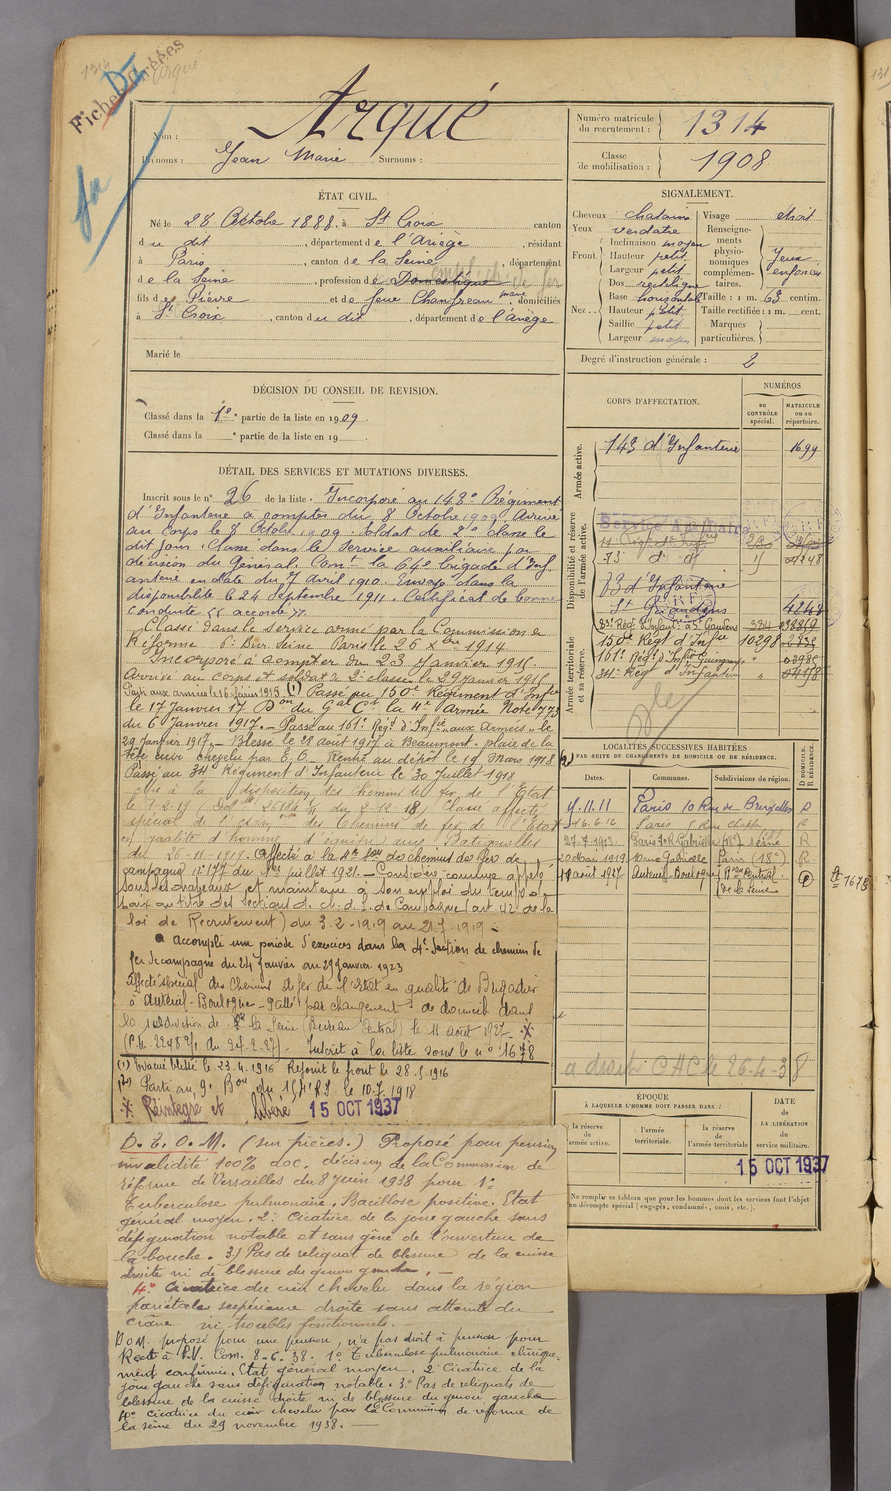 1314
Arqué
Fiches
Arqué
Nom :
Prénoms : Jean Marie Surnoms :
Numéro matricule
du recrutement : 1314
Classe
de mobilisation : 1908
ÉTAT CIVIL.
Né le 28 Octobre 1888, à St Croix canton
du dit, département de l'Ariège, résidant
à Paris, canton de la Seine, département
de la Seine, profession de Domestique
fils de Pierre et de feue Chanfreau Marie, domiciliés
à St Croix, canton du dit, département de l'Ariège
Marié le
SIGNALEMENT.
Cheveux chatains Visage étroit
Yeux verdatre
Front Inclinaison moyen
Hauteur petit
Largeur petit
Nez Dos rectiligne
Base horizontal
Hauteur petit
Saillie petit
Largeur moyen
Renseignements
physionomiques
complémentaires. Yeux
enfoncés
Taille : 1 m. 63 centim.
Taille rectifiée : 1 m. cent.
Marques
particulières.
Degré d'instruction générale : 2
DÉCISION DU CONSEIL DE REVISION.
Classé dans la 1e partie de la liste en 1909
Classé dans la e partie de la liste en 19
DÉTAIL DES SERVICES ET MUTATIONS DIVERSES.
Inscrit sous le n° 26 de la liste. Incorporé au 143e Régiment
d'Infanterie à compter du 8 Octobre 1909. Arrivé
au corps le 8 Octobre 1909. Soldat de 2e classe le
dit jour. Classé dans le Service auxiliaire par
décision du Général Comt la 64e brigade d'Inf
anterie en date du 7 Avril 1910. Envoyé dans la
disponibilité le 24 Septembre 1911. Certificat de bonne
conduite "accordé".
Classé dans le service armé par la Commission de
Réforme Seine Paris le 26 Xbre 1914.
Incorporé à compter du 23 Janvier 1915.
Arrivé au corps et soldat de 2e classe le 29 Janvier 1915
Parti aux armées le 16 février 1915 (1) Passé au 150e Régiment d'Infie
le 17 Janvier 17 Don du Gal Ct la 4e Armée Note 773
du 6 Janvier 1917. - Passé au 161e Régt d'Infie "aux Armées" le
29 Janvier 1917. Blessé le 28 août 1917 à Beaumont : plaie de la
tête cuir chevelu par E.O. Rentré au dépôt le 19 Mars 1918
Passé au 34e Régiment d'Infanterie le 30 Juillet 1918
mis à la disposition des chemins de fer de l'Etat
le 1-2-19
du 2-12-18) Classé affecté
spécial de l'escon des Chemins de fer de l'Etat
en qualité d'homme d'équipe aux Batignolles
du 26-11-1919. Affecté à la 4e Son de chemins de fer de
campagne du 1er juillet 1921. - Considéré comme appelé
sous les drapeaux et maintenu à son emploi du temps de
paix au titre des Sections de ch. d. f. de Campagne (art. 42 de la
loi de Recrutement) du 3-2-1919 au 21-7-1919 -
a accompli une période d'exercices dans la 4e Section de chemin de
fer de campagne du 24 Janvier au 29 Janvier 1923
Affecté spécial des Chemins de fer de l'Etat en qualité de Brigadier
à Auteuil-Boulogne - passé par changement de domicile dans
la subdivision de la Seine (Bureau Central) le 11 août 1927. ※
Inscrit à la liste sous le n° 1678
(1) Evacué blessé le 23-4-1916 Rejoint le front le 28-5-1916
(2) Parti au 9e Bon du 154e R.I. le 10-7-1918
※ Réintégré et libéré 15 OCT 1937
D. E. O. M. (sur pièces.) Proposé pour pension
invalidité 100% doc. décision de la Commission de
réforme de Versailles du 8 Juin 1938 pour 1°
Tuberculose pulmonaire. Bacillose positive. Etat
général moyen. 2° cicatrice de la joue gauche sans
défiguration notable et sans gêne de l'ouverture de
la bouche. 3) Pas de reliquat de blessure de la cuisse
droite ni de blessure du genou gauche. -
4° Cicatrice du cuir chevelu dans la région
pariétale supérieure droite sans atteinte du
crâne ni troubles fonctionnels. -
D.O.M. proposé pour une pension, n'a pas droit à pension pour
Recte à P.V. Com. 8-6-38. 1° Tuberculose pulmonaire clinique-
ment confirmée. Etat général moyen. 2° Cicatrice de la
joue gauche sans défiguration notable. 3° Pas de reliquats de
blessure de la cuisse droite ni de blessure du genou gauche
4° cicatrice du cuir chevelu par la Commission de réforme de
la Seine du 29 novembre 1938. -
CORPS D'AFFECTATION.
NUMÉROS
au
CONTRÔLE
spécial.
MATRICULE
ou au
répertoire.
Armée active.
143 d'Infanterie 1699
Disponibilité et réserve
de l'armée active.
Service Auxiliaire
83 d'Infanterie
St Gaudens 4248
83e Régt d'Infant. St Gaudens
150e Régt d'Infie 10298
161e Régt d'Infie Guingamp
34e Reg d'Infanterie
Armée territoriale
et sa réserve.
LOCALITÉS SUCCESSIVES HABITÉES
PAR SUITE DE CHANGEMENTS DE DOMICILE OU DE RÉSIDENCE.
Dates. Communes. Subdivisions de région. D DOMICILE. R RÉSIDENCE.
9.11.11 Paris 10 Rue de Bruxelles R
16.6.12 Paris R
27.7.1913 Paris R. Gabrielle (18e) Seine R
20 Mai 1919 10 rue Gabrielle Paris (18e) R
11 août 1927 Auteuil-Boulogne Bau Central
de la Seine
1678
a droit CAC le 26-4-38
ÉPOQUE
À LAQUELLE L'HOMME DOIT PASSER DANS :
la réserve
de
l'armée active.
l'armée
territoriale.
la réserve
de
l'armée territoriale
DATE
de
LA LIBÉRATION
du
service militaire.
15 OCT 1937
Ne remplir ce tableau que pour les hommes dont les services font l'objet
d'un décompte spécial (engagés, condamnés, omis, etc.).